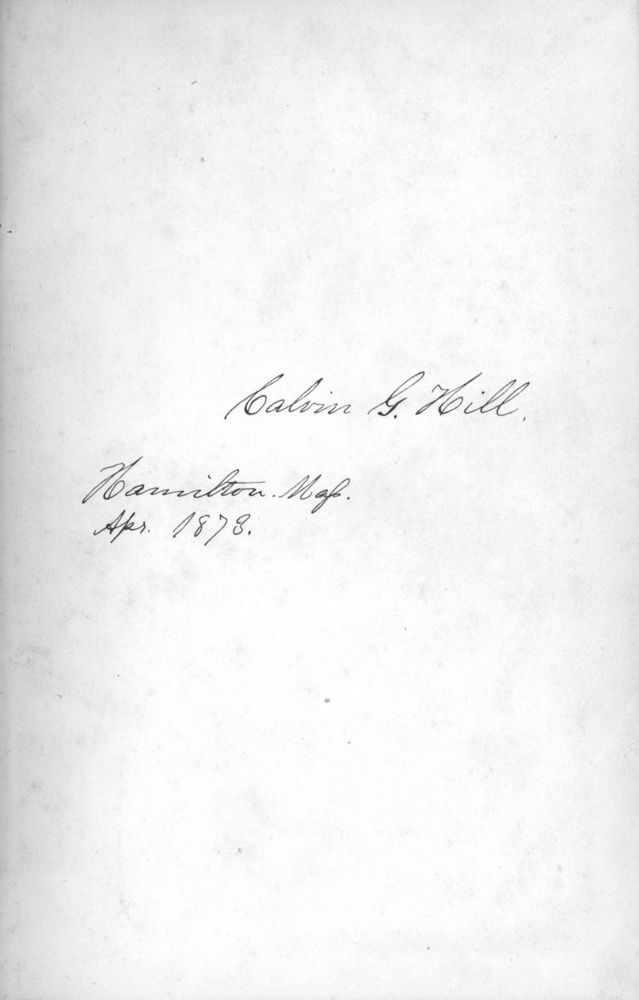 Calvin G. Hill.
Hamilton. Maſs.
Apr. 1873.